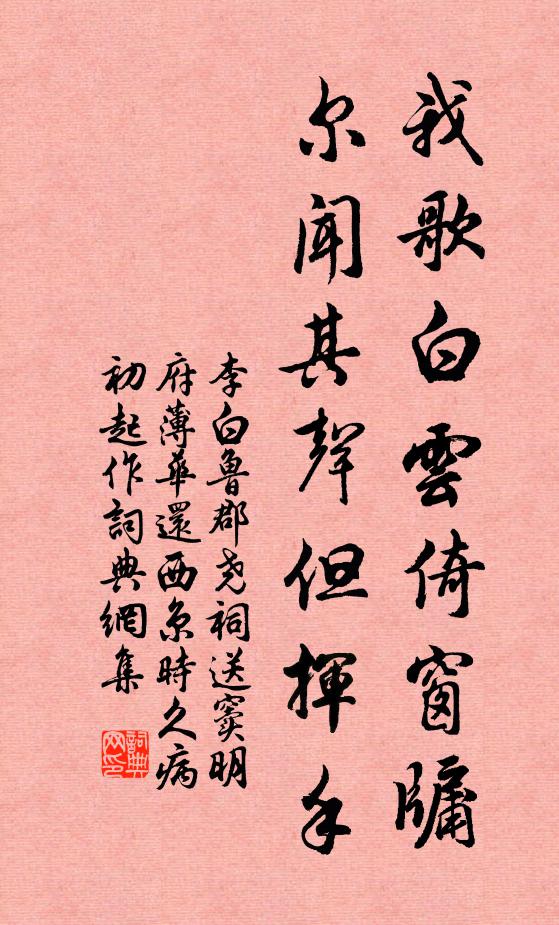 我歌白雲倚窗牖
尔聞其聲但揮手
李白魯郡尧祠送窦明
府薄華還西京時久病
初起作詞典網集
詞典
网印